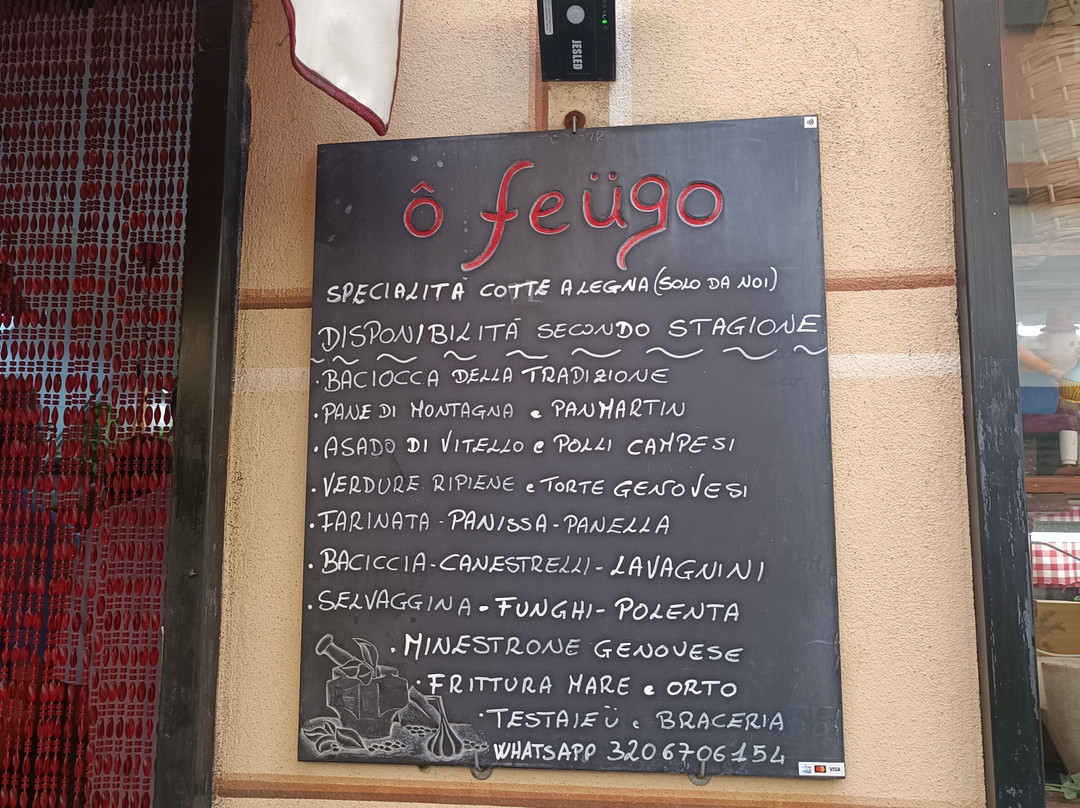 JESLED
ô feügo
SPECIALITÀ COTTE A LEGNA (SOLO DA NOI)
DISPONIBILITÀ SECONDO STAGIONE
· BACIOCCA DELLA TRADIZIONE
· PANE DI MONTAGNA e PANMARTIN
· ASADO DI VITELLO e POLLI CAMPESI
· VERDURE RIPIENE e TORTE GENOVESI
· FARINATA - PANISSA - PANELLA
· BACICCIA - CANESTRELLI - LAVAGNINI
· SELVAGGINA - FUNGHI - POLENTA
· MINESTRONE GENOVESE
· FRITTURA MARE e ORTO
· TESTAIEÜ e BRACERIA
WHATSAPP 3206706154
VISA